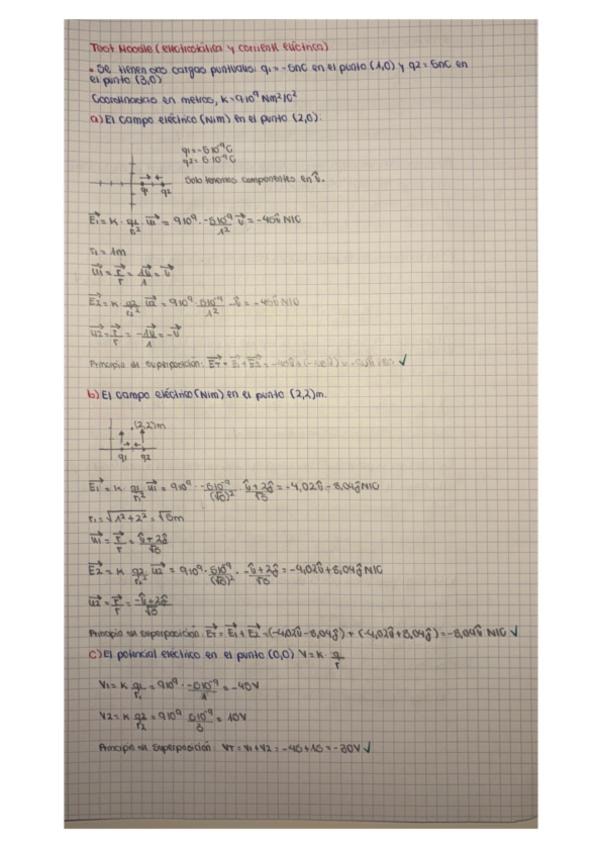 Test Moodle (electrostática y corriente eléctrica)
• Se tienen dos cargas puntuales: q1 = -5nC en el punto (1,0) y q2 = 5nC en
el punto (3,0)
Coordenadas en metros, K=9·10⁹ Nm²/C²
a) El campo eléctrico (N/m) en el punto (2,0):
q1=-5·10⁻⁹C
q2= 5·10⁻⁹C
Solo tenemos componentes en î.
q1 q2
E1 = K · q1/r1² · u1 = 9·10⁹ · -5·10⁻⁹/1² î = -45î N/C
r1 = 1m
u1 = r/r = 1î/1 = î
E2 = K · q2/r2² · u2 = 9·10⁹ · 5·10⁻⁹/1² · -î = -45î N/C
u2 = r/r = -1î/1 = -î
Principio de superposición: ET = E1 + E2 = -45î + (-45î) = -90î N/C ✓
b) El campo eléctrico (N/m) en el punto (2,2)m.
(2,2)m
q1 q2
E1 = K · q1/r1² · u1 = 9·10⁹ · -5·10⁻⁹/(√5)² · î+2ĵ/√5 = -4,02î - 8,04ĵ N/C
r1 = √1²+2² = √5m
u1 = r/r = î+2ĵ/√5
E2 = K q2/r2² u2 = 9·10⁹ · 5·10⁻⁹/(√5)² · -î+2ĵ/√5 = -4,02î + 8,04ĵ N/C
u2 = r/r = -î+2ĵ/√5
Principio de superposición: ET = E1 + E2 = (-4,02î - 8,04ĵ) + (-4,02î + 8,04ĵ) = -8,04î N/C ✓
c) El potencial eléctrico en el punto (0,0) V = K · q/r
V1 = K q1/r1 = 9·10⁹ · -5·10⁻⁹/1 = -45V
V2 = K q2/r2 = 9·10⁹ 5·10⁻⁹/3 = 15V
Principio de superposición: VT = V1 + V2 = -45 + 15 = -30V ✓